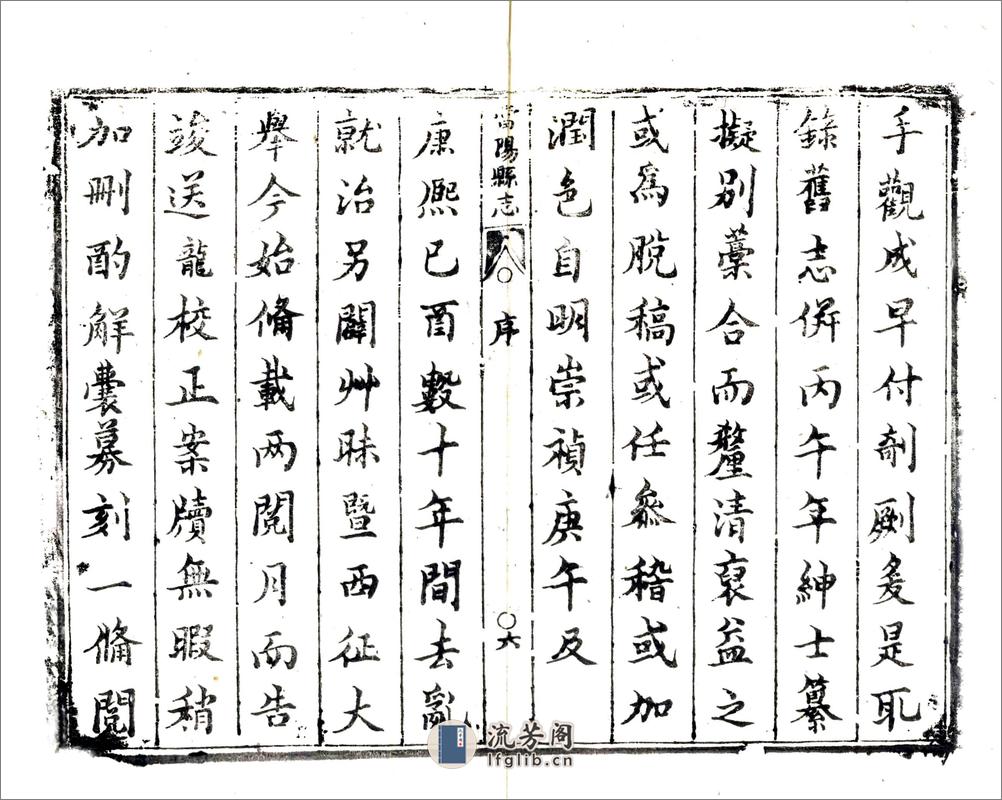 手觀成早付剞劂爰是取
錄舊志併丙午年紳士纂
擬別藁合而釐清裒益之
或爲脫稿或任叅稽或加
潤色自明崇禎庚午及
當陽縣志 序 六
康熈己酉數十年間去亂
就治另闢艸昧暨西征大
舉今始備載两閱月而告
竣送龍校正案牘無暇稍
加刪酌解囊募刻一脩閱
流芳阁
lfglib.cn